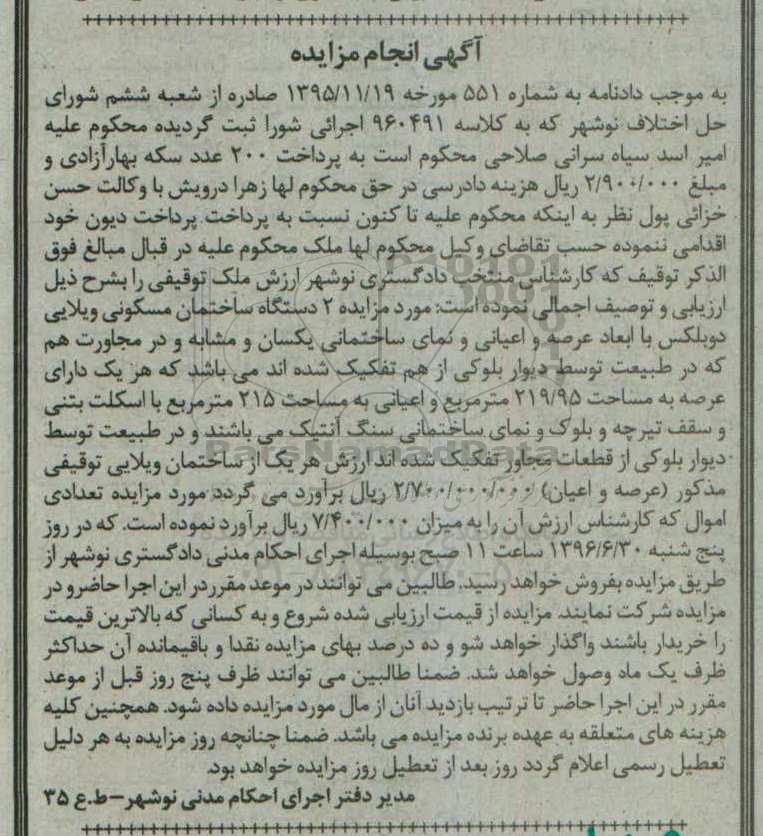 آگهی انجام مزایده
به موجب دادنامه به شماره ۵۵۱ مورخه ۱۳۹۵/۱۱/۱۹ صادره از شعبه ششم شورای
حل اختلاف نوشهر که به کلاسه ۹۶۰۴۹۱ اجرائی شورا ثبت گردیده محکوم علیه
امیر اسد سیاه سرانی صلاحی محکوم است به پرداخت ۲۰۰ عدد سکه بهارآزادی و
مبلغ ۲/۹۰۰/۰۰۰ ریال هزینه دادرسی در حق محکوم لها زهرا درویش با وکالت حسن
خزائی پول نظر به اینکه محکوم علیه تا کنون نسبت به پرداخت پرداخت دیون خود
اقدامی ننموده حسب تقاضای وکیل محکوم لها ملک محکوم علیه در قبال مبالغ فوق
الذکر توقیف که کارشناس منتخب دادگستری نوشهر ارزش ملک توقیفی را بشرح ذیل
ارزیابی و توصیف اجمالی نموده است: مورد مزایده ۲ دستگاه ساختمان مسکونی ویلایی
دوبلکس با ابعاد عرصه و اعیانی و نمای ساختمانی یکسان و مشابه و در مجاورت هم
که در طبیعت توسط دیوار بلوکی از هم تفکیک شده اند می باشد که هر یک دارای
عرصه به مساحت ۲۱۹/۹۵ مترمربع و اعیانی به مساحت ۲۱۵ مترمربع با اسکلت بتنی
و سقف تیرچه و بلوک و نمای ساختمانی سنگ آنتیک می باشند و در طبیعت توسط
دیوار بلوکی از قطعات مجاور تفکیک شده اند ارزش هر یک از ساختمان ویلایی توقیفی
مذکور (عرصه و اعیان) ۲/۷۰۰/۰۰۰/۰۰۰ ریال برآورد می گردد مورد مزایده تعدادی
اموال که کارشناس ارزش آن را به میزان ۷/۴۰۰/۰۰۰ ریال برآورد نموده است. که در روز
پنج شنبه ۱۳۹۶/۶/۳۰ ساعت ۱۱ صبح بوسیله اجرای احکام مدنی دادگستری نوشهر از
طریق مزایده بفروش خواهد رسید. طالبین می توانند در موعد مقرردر این اجرا حاضرو در
مزایده شرکت نمایند. مزایده از قیمت ارزیابی شده شروع و به کسانی که بالاترین قیمت
را خریدار باشند واگذار خواهد شو و ده درصد بهای مزایده نقدا و باقیمانده آن حداکثر
ظرف یک ماد وصول خواهد شد. ضمنا طالبین می توانند ظرف پنج روز قبل از موعد
مقرر در این اجرا حاضر تا ترتیب بازدید آنان از مال مورد مزایده داده شود. همچنین کلیه
هزینه های متعلقه به عهده برنده مزایده می باشد. ضمنا چنانچه روز مزایده به هر دلیل
تعطیل رسمی اعلام گردد روز بعد از تعطیل روز مزایده خواهد بود.
مدیر دفتر اجرای احکام مدنی نوشهر–ط.ع ۳۵
ParsNamadData